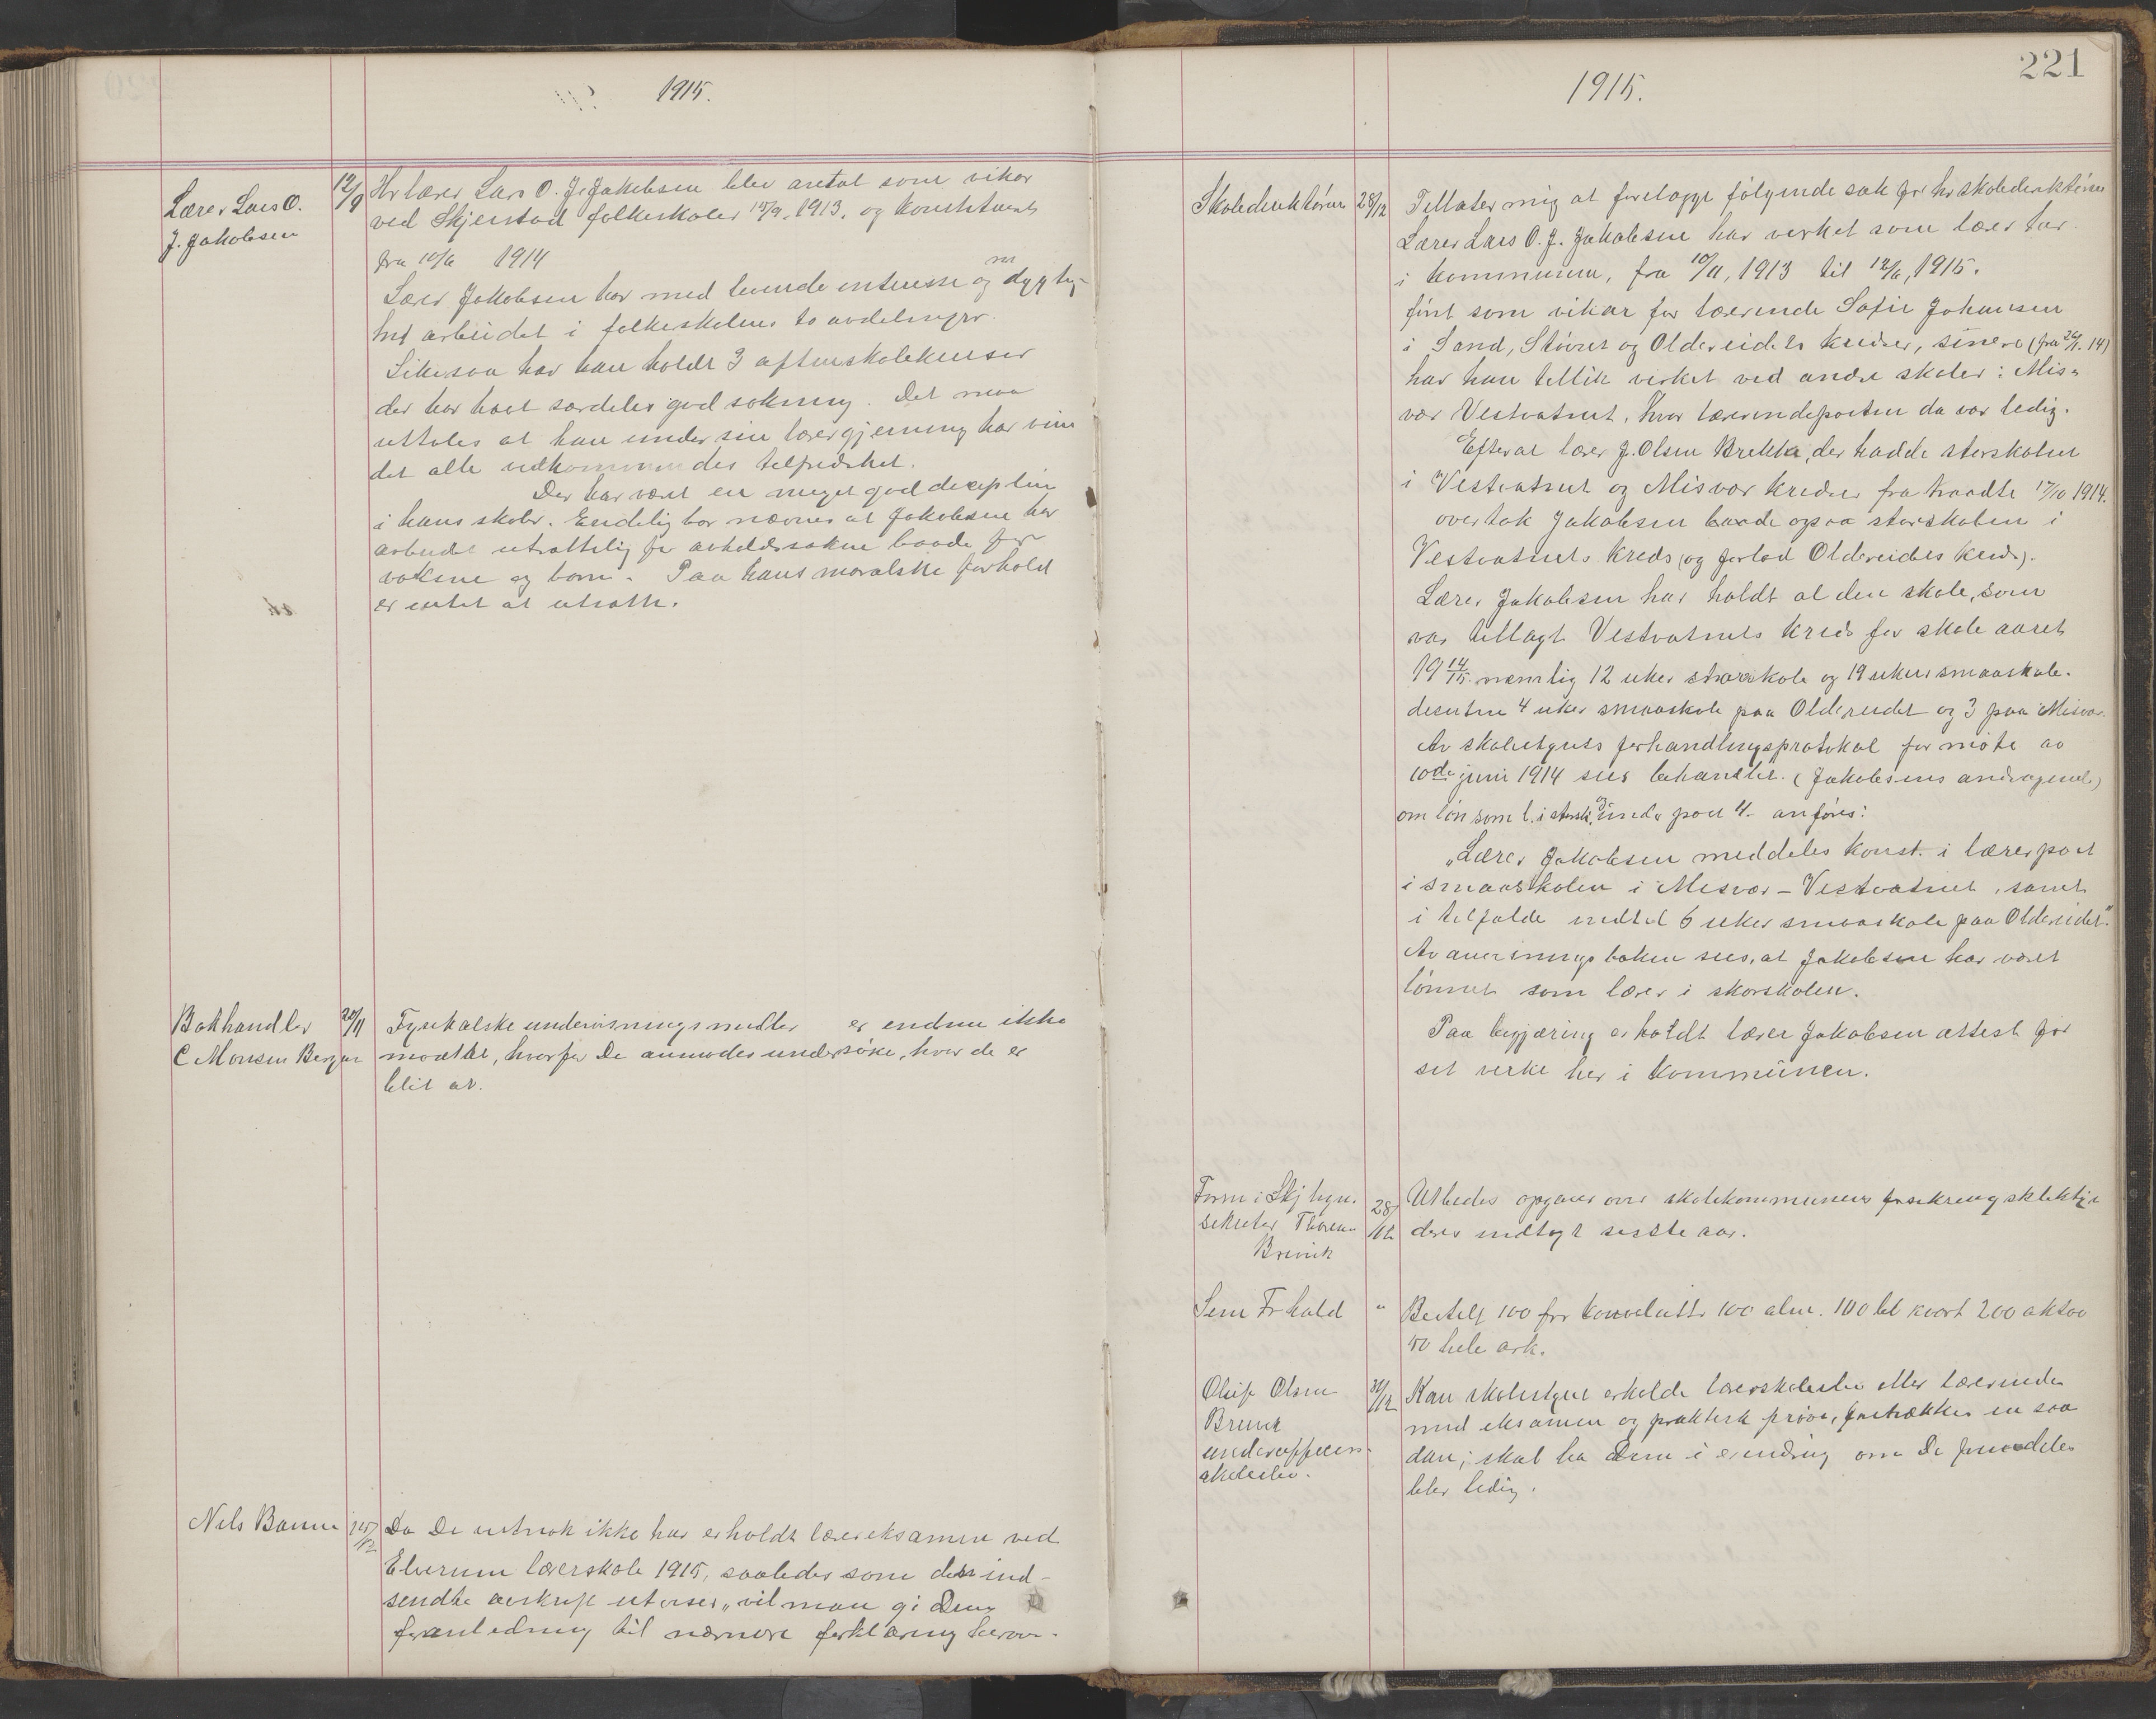 1915.
Lærer Lars O.
J. Jakobsen
12/9
Hr lærer Lars O. J. Jakobsen blev antat som vikar
ved Skjerstad folkeskoler 15/9. 1913. og konstituert
fra 10/6 1914
Lærer Jakobsen har med levende interesse og dygtig-
het arbeidet i folkeskolens to avdelinger.
Likesaa har han holdt 3 aftenskolekurser
der har hat særdeles god søkning. Det maa
uttales at han under sin lærergjerning har vun
det alle vedkommendes tilfredshet.
Der har været en meget god diciplin
i hans skoler. Endelig bør nævnes at Jakobsen har
arbeidet utrættelig for avholdssaken baade for
voksne og barn. Paa hans moralske forhold
er intet at utsætte.
Bokhandler
C Monsen Bergen
20/11
Fysikalske undervisningsmidler er endnu ikke
mottat, hvorfor De anmodes undersøke, hvor de er
blit av.
Nils Baune
Da De nok ikke har erholdt lærereksamen ved
Elverum lærerskole 1915, saaledes som den ind-
sendte avskrift utviser, vil man gi Dem
foranledning til nærmere forklaring herom.
221
1915.
Skoledirektøren
28/12
Tillater mig at forelægge følgende sak for hr skoledirektøren
Lærer Lars O. J. Jakobsen har virket som lærer her
i kommunen, fra 10/11, 1913 til 12/6, 1915.
først som vikar for lærerinde Sofie Johansen
i Sand, Støvset og Oldereidets kredser, senere (fra 26/1. 14)
har han tillike virket ved andre skoler: Mis-
vær Vestvatnet, hvor lærerindeposten da var ledig.
Efterat lærer J. Olsen Brekke, der hadde storskolen
i Vestvatnet og Misvær kredser fratraadte 17/10 1914.
overtok Jakobsen baade ogsaa storskolen i
Vestvatnets kreds (og forlod Oldereidets kreds).
Lærer Jakobsen har holdt al den skole, som
var tillagt Vestvatnets kreds for skoleaaret
19 14/15 nemlig 12 uker storskole og 19 ukers smaaskole.
desuten 4 uker smaaskole paa Oldereidet og 3 paa Misvær.
Av skolestyrets forhandlingsprotokol for møte av
10de juni 1914 sees behandlet. (Jakobsens andragende)
om løn som l. i storsk. og under post 4. anføres:
"Lærer Jakobsen meddeles konst. i lærerpost
i smaaskolen i Misvær - Vestvatnet, samt
i tilfælde indtil 6 uker smaaskole paa Oldereidet."
Av anvisningsboken sees, at Jakobsen har været
lønnet som lærer i storskolen.
Paa begjæring erholdt lærer Jakobsen attest for
sit virke her i kommunen.
Form i Skj
Brevik
28/12
Utbedes opgave over skolekommunens
deres indtægt sidste aar.
Sem Fr hald
"
Bestilt 100 konvolutter 100 alm. 100 kvart 200 oktav
50 hele ark.
Olsen
31/12
Kan skolestyret erholde lærerskolelærer eller lærerinde
med eksamen og praktisk prøve, foretrækkes en saa
dan; skal ha Dem i erindring om De fremdeles
blir ledig.